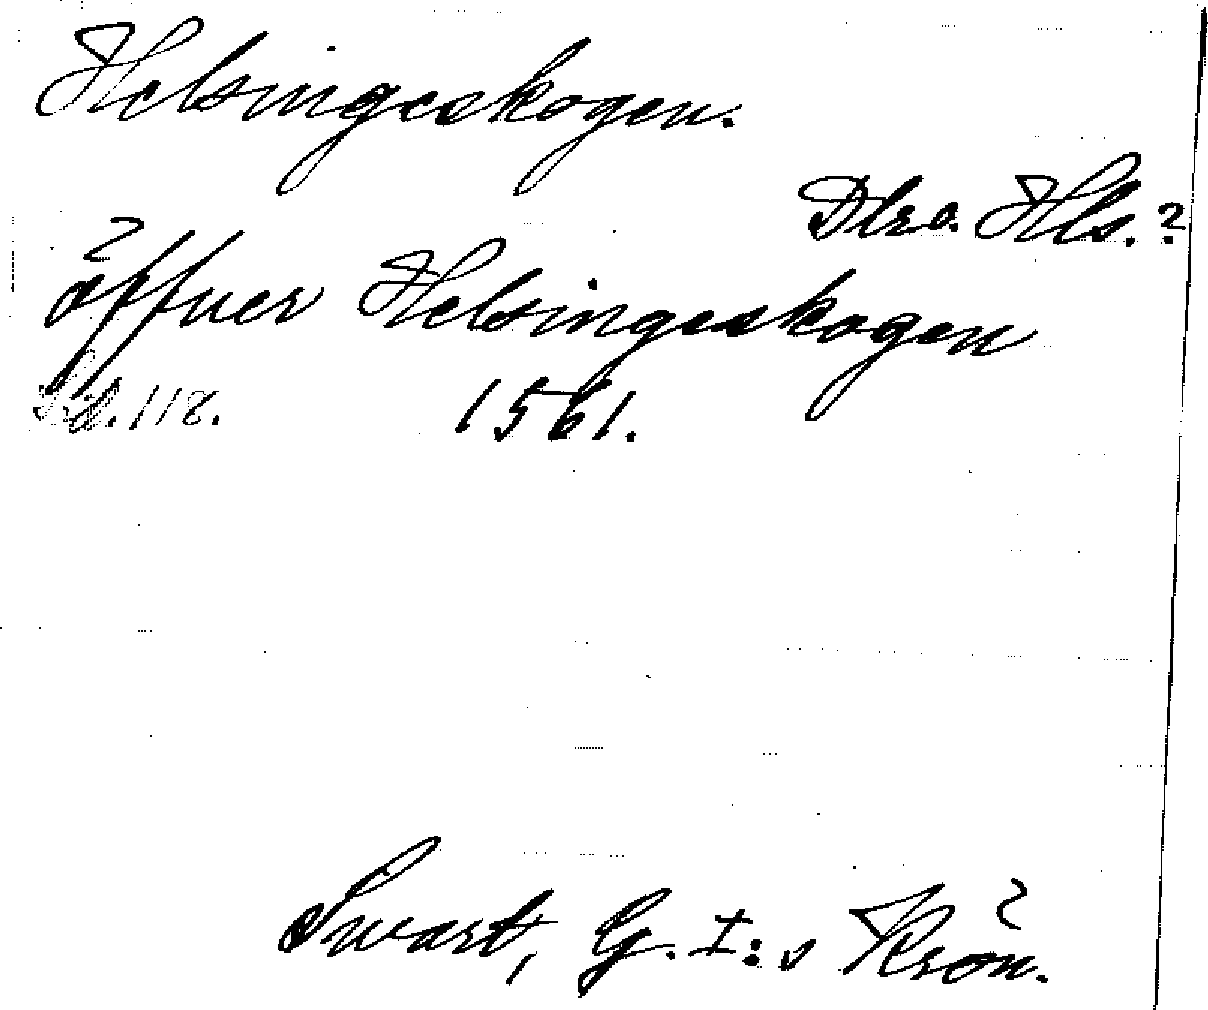 Helsingeskogen.
Dlra. Hls.?
öffuer Helsingeskogen
Sid. 118. 1561.
Swart, G. I:s Krön.